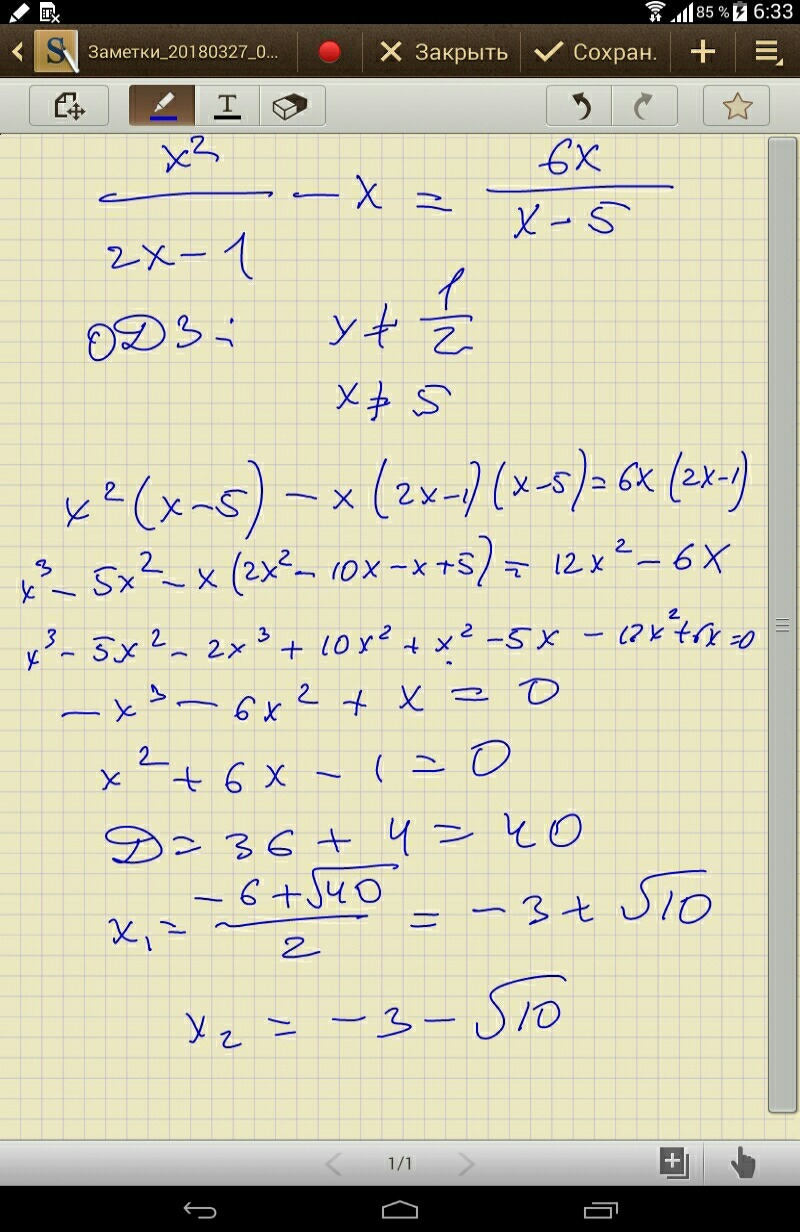 85 % 6:33
Заметки_20180327_0... Закрыть Сохран.
T
x² / (2x - 1) - x = 6x / (x - 5)
ОДЗ: y ≠ 1/2
x ≠ 5
x²(x-5) - x(2x-1)(x-5) = 6x(2x-1)
x³ - 5x² - x(2x² - 10x - x + 5) = 12x² - 6x
x³ - 5x² - 2x³ + 10x² + x² - 5x - 12x² + 6x = 0
- x³ - 6x² + x = 0
x² + 6x - 1 = 0
D = 36 + 4 = 40
x₁ = (-6 + √40) / 2 = -3 + √10
x₂ = -3 - √10
1/1